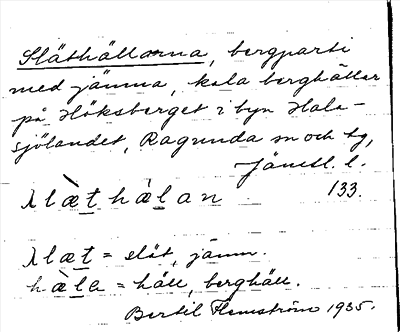 Släthällarna, bergparti
med jämna, kala berghällar
på Höksberget i byn Hala-
sjölandet, Ragunda sn och tg,
Jämtl. l.
ʌlæ̀t hæ̀lan 133.
ʌlæt = slät, jämn.
hæ̀la = häll, berghäll.
Bertil Flemström 1935.